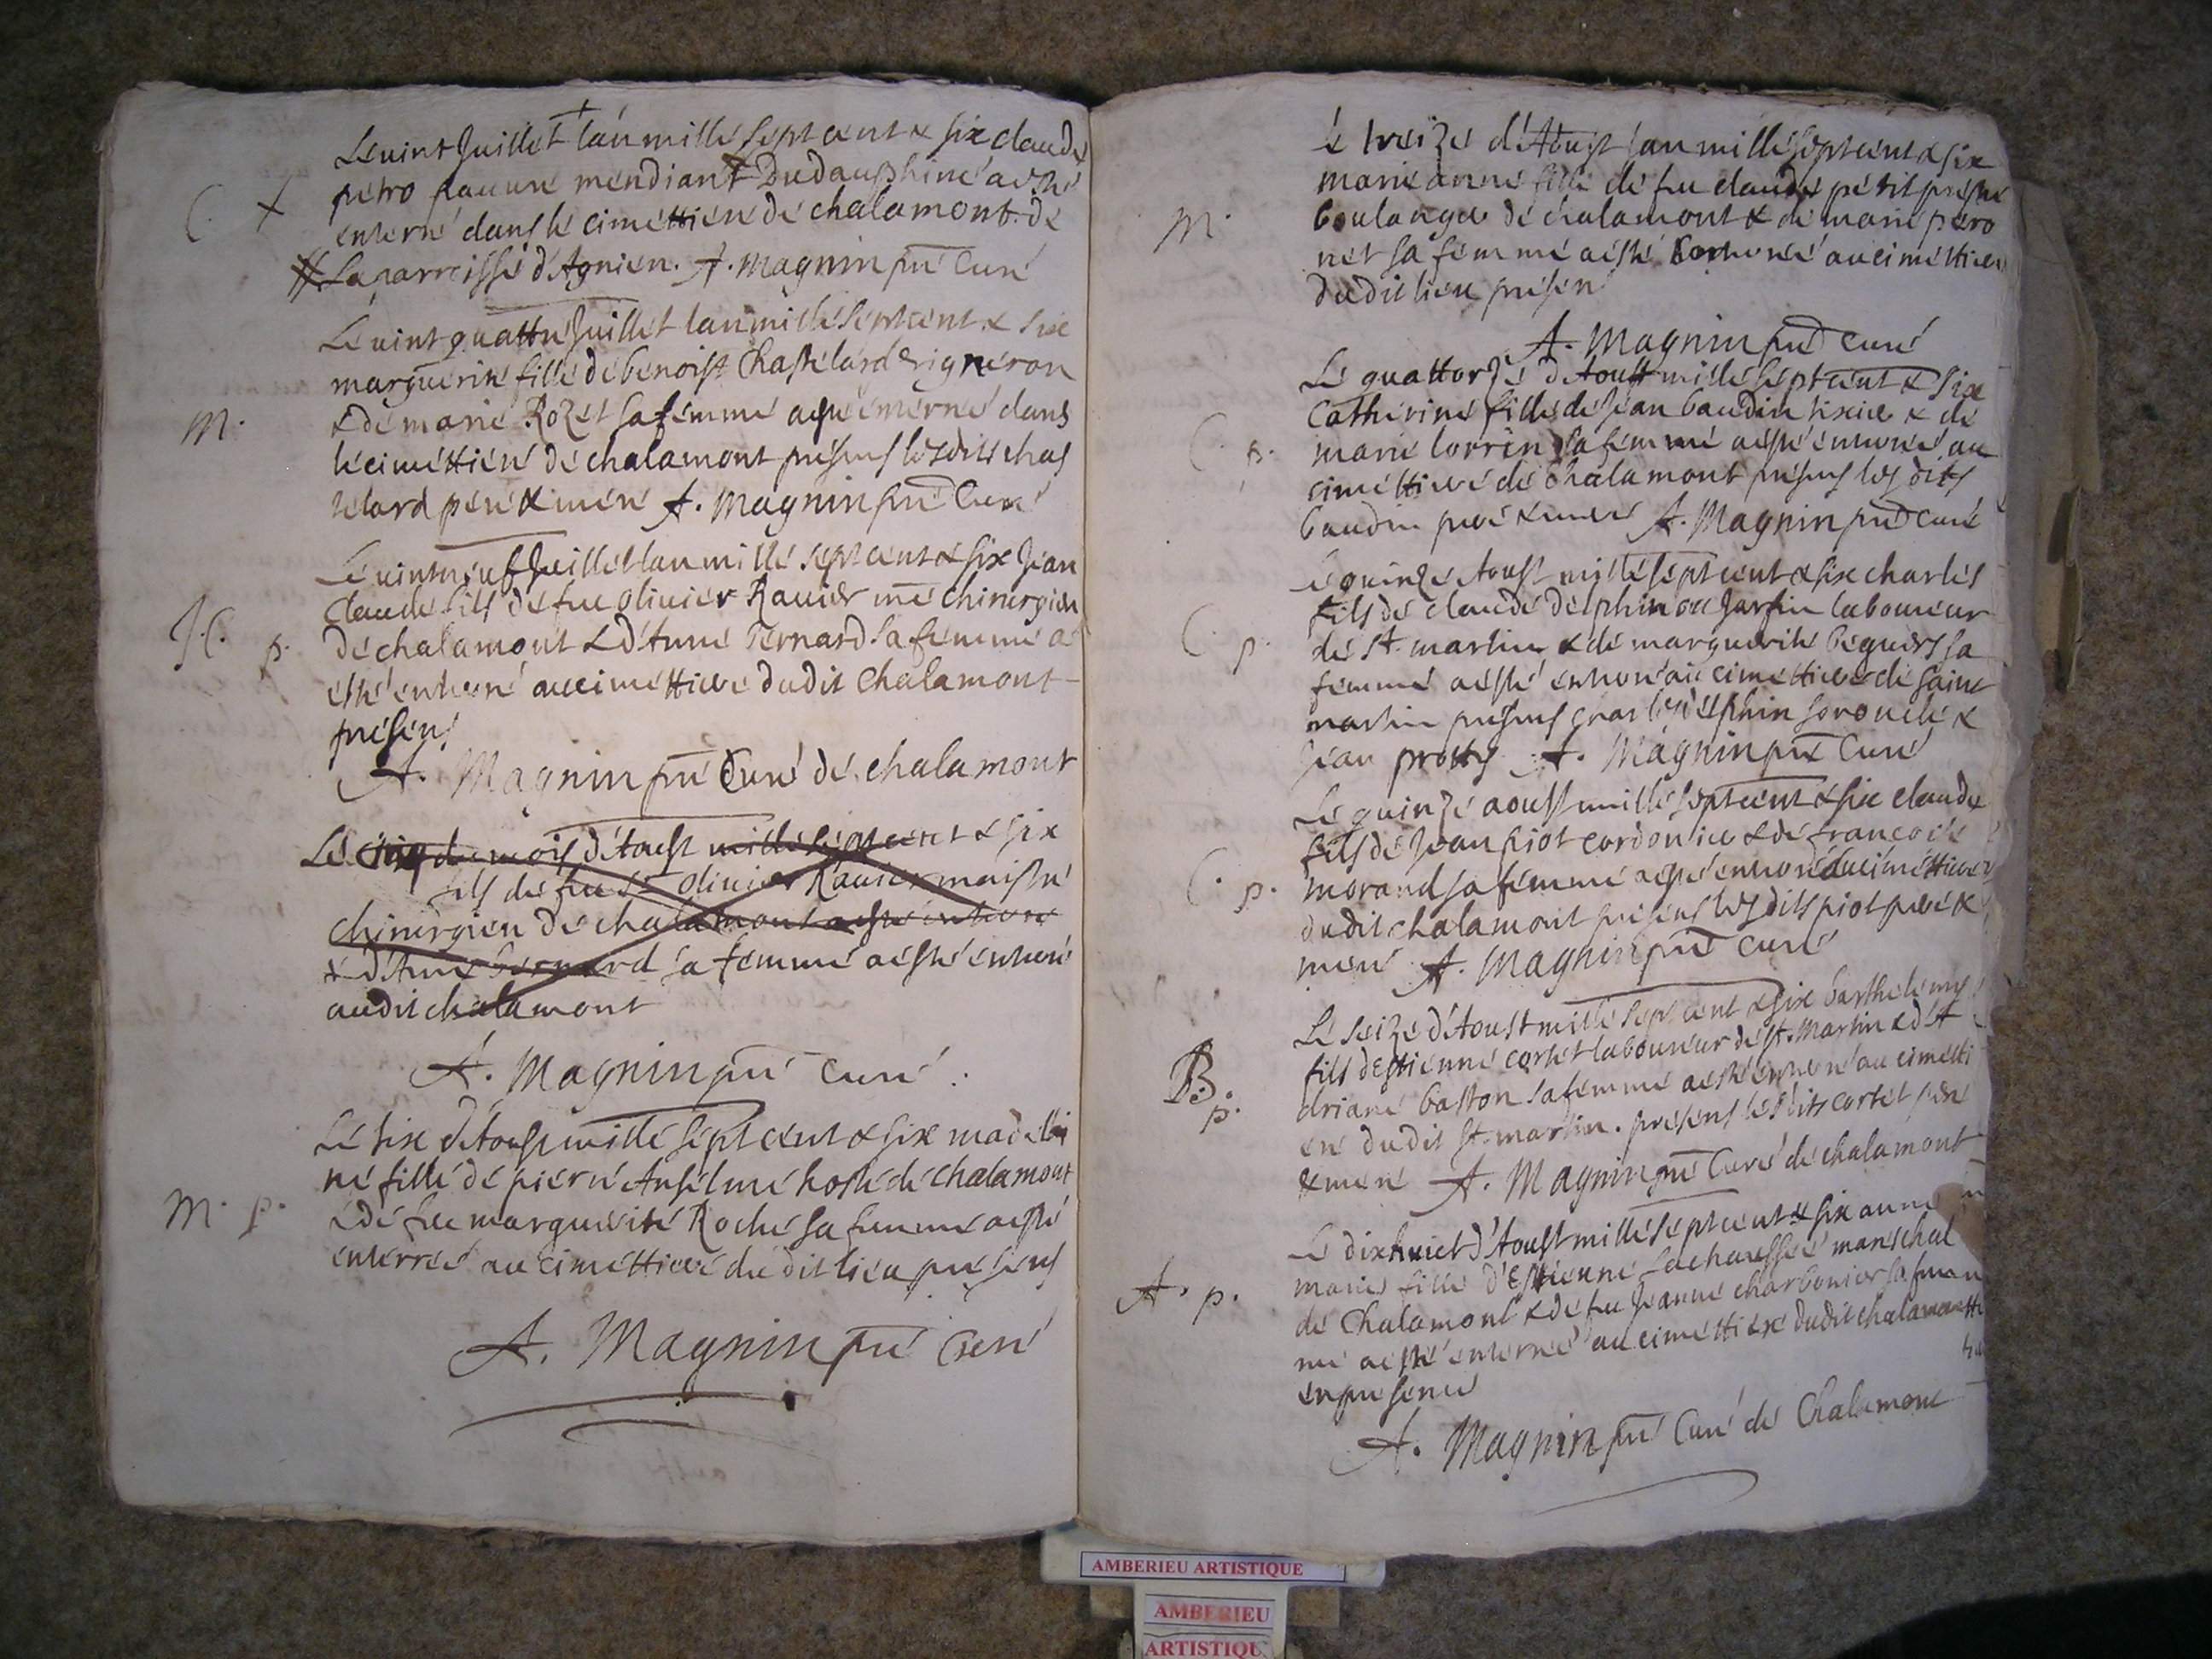 Le vint Juillet l'an mille sept cent & six claude
C. + petro pauvre mendiant Du dauphiné a esté
enterré dans le cimettiere de chalamont de
la parroisse d'Agnien. A. Magnin pre Curé
Le vint quattre Juillet lan mille sept cent & six
marguerite fille de benoist Chastelard Vigneron
M. & de marie Rozet sa femme a esté enterré dans
le cimettiere de chalamont présens les dits chas
telard pere & mere A. Magnin pre Curé
Le vint neuf Juillet lan mille sept cent & six Jean
Claude fils de feu olivier Ravier me chirurgien
J.C. p. de chalamont & d'Anne Bernard sa femme a
esté enterré au cimettiere dudit Chalamont
présens
A. Magnin pre Curé de chalamont
Le cinq du mois d'Aoust mille sept cent & six
fils de feu Sr olivier Ravier maistre
chirurgien de chalamont a esté enterré
& d'Anne bernard sa femme a esté enterré
audit chalamont
A. Magnin pre Curé
Le six d'Aoust mille sept cent & six madelei
ne fille de pierre Anselme hoste de chalamont
M. p. & de feu marguerite Roche sa femme a esté
enterrée au cimettiere dudit lieu presens
A. Magnin pre Curé
le treize d'Aoust lan mille sept cent & six
marie anne fille de feu claude petit
M. boulanger de chalamont & de marie pero
net sa femme a esté enterreé au cimettiere
dudit lieu présen
A. Magnin pre Curé
Le quattorze d'Aoust mille sept cent & six
Catherine fille de Jean baudin tixier & de
C. p. marie lorrin sa femme a esté enterré au
cimettiere de Chalamont présens les dits
baudin pere & mere A. Magnin pre Curé
Le quinze Aoust mille sept cent & six charles
fils de claude delphin ou Jarfin laboureur
C. p. de St martin & de marguerite beguers sa
femme a esté enterré au cimettiere de saint
martin présens delphin &
Jean A. Magnin pre Curé
Le quinze aoust mille sept cent & six claude
fils de Jean piot cordonier & de francoise
C. p. morand sa femme a esté enterré au cimettiere
dudit chalamont présens les dits piot pere &
mere A. Magnin pre Curé
Le seize d'Aoust mille sept cent & six barthelemy
fils destienne cortet laboureur de st. Martin & d'A
B. p. driane baston sa femme a esté enterré au cimetti
ere dudit st. martin. presens les dits cortet pere
& mere A. Magnin pre Curé de chalamont
Le dixhuict d'Aoust mille sept cent & six anne
marie fille d'Estienne Lachaussée mareschal
A. p. de Chalamont & de feu Jeanne charbonier sa fem
me a esté enterré au cimettiere dudit chalamont
en présence
A. Magnin pre Curé de Chalamont
AMBERIEU ARTISTIQUE
AMBERIEU
ARTISTIQU